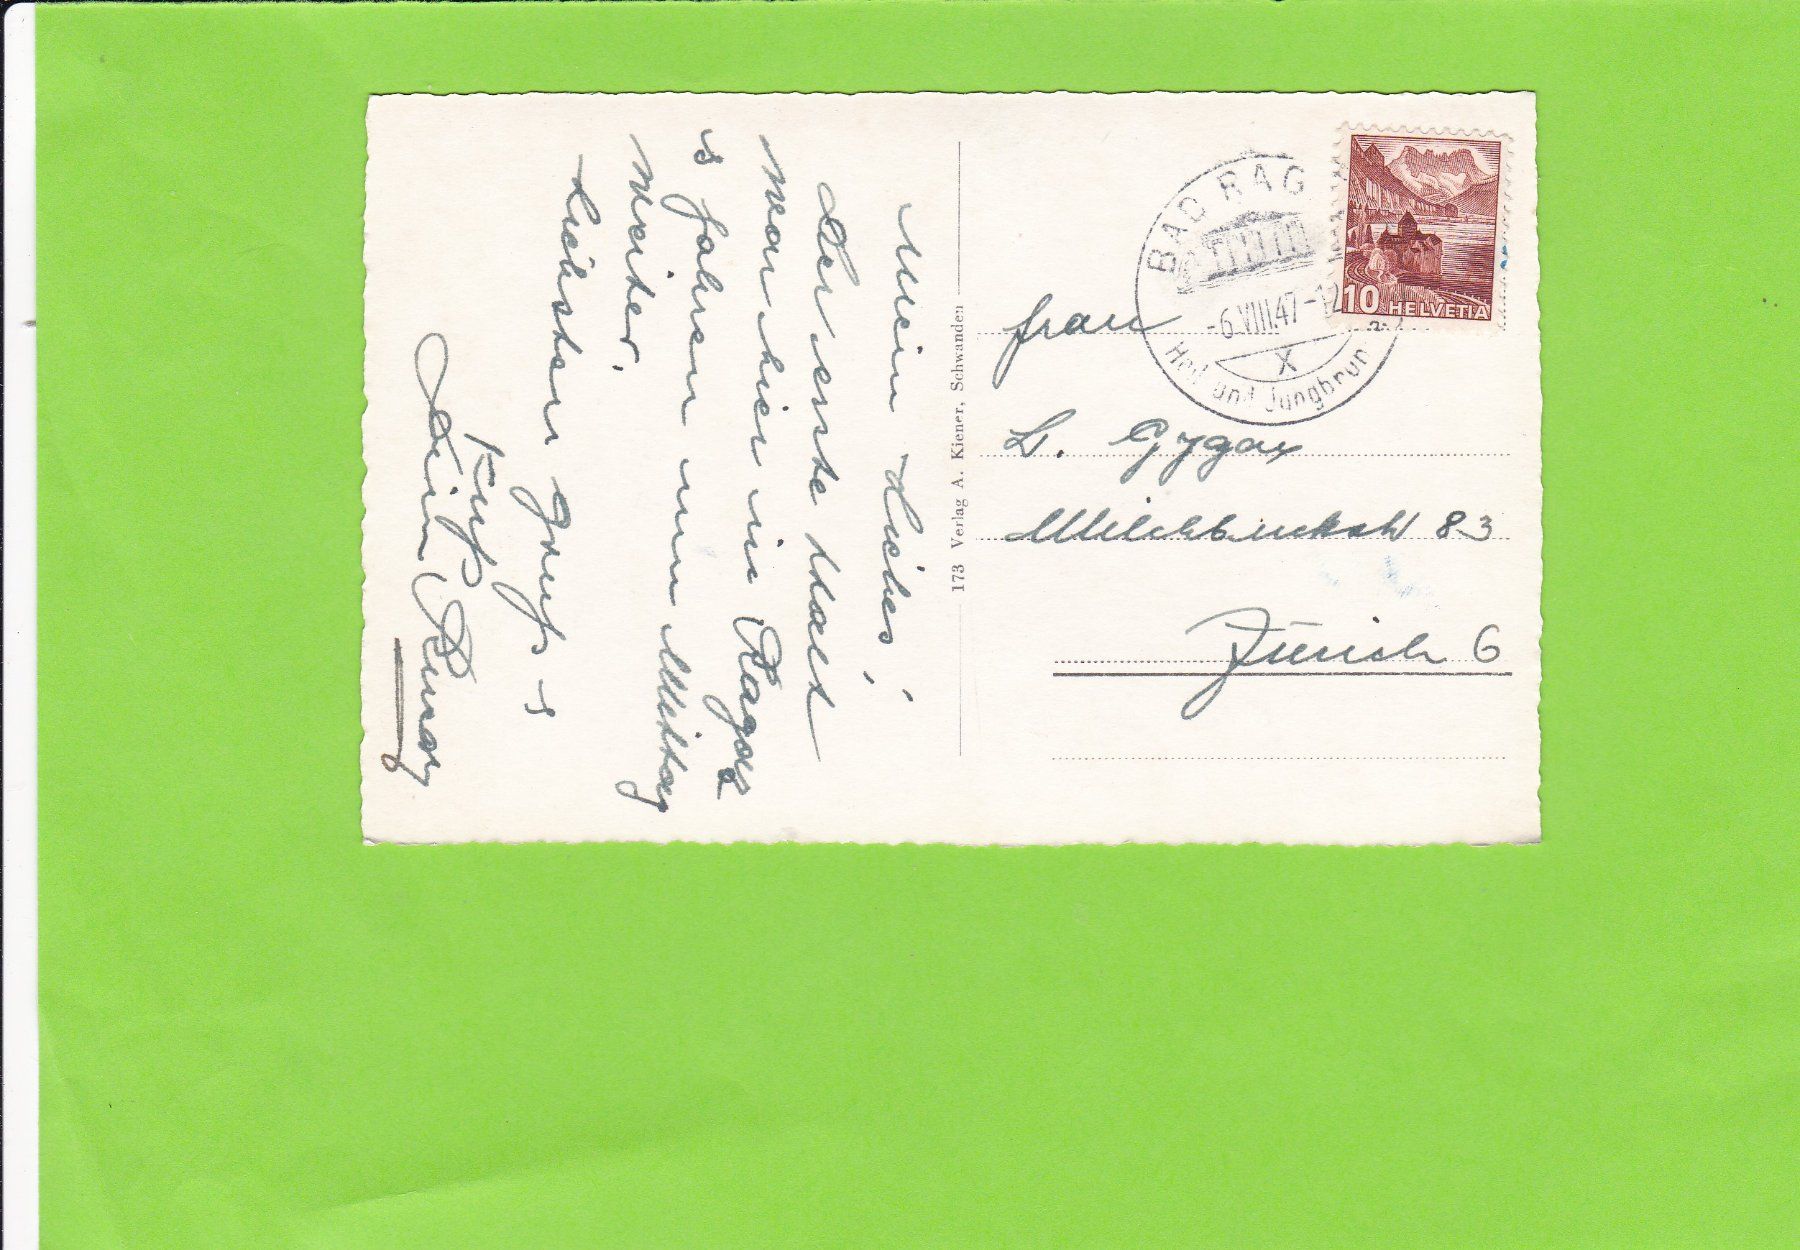 Mein Liebes!
der erste Halt
war hier in Ragaz
s fahren nun Mittag
weiter.
Liebsten Gruß &
Kuß
Dein
173 Verlag A. Kiener, Schwanden
BAD RAG
-6.VIII.47-12
X
Heil und Jungbrun
10 HELVETIA
Frau
L. Gygax
Milchbuckstr 83
Zürich 6